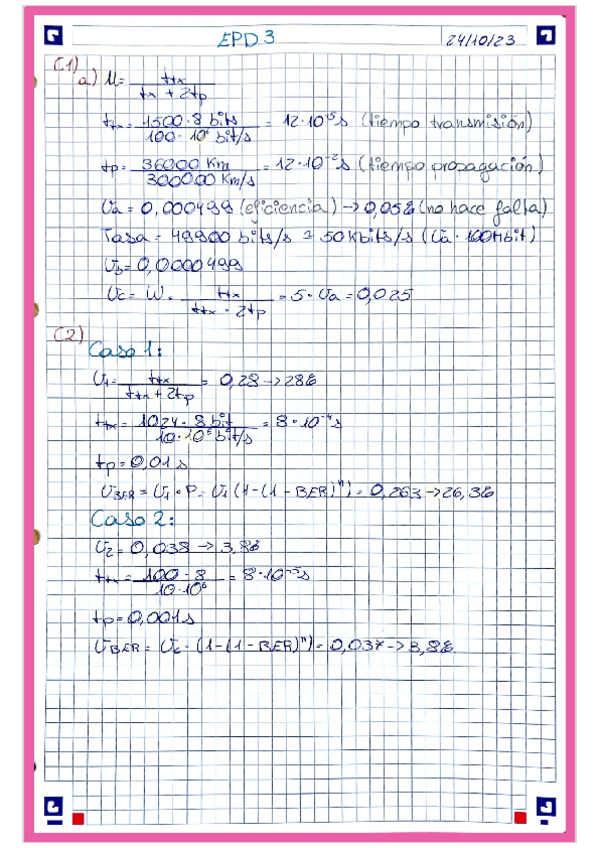 EPD 3
24/10/23
C1)
a) U = ttx / (tx + 2tp)
ttx = 1500 · 8 bits / 100 · 10⁶ bit/s = 12·10⁻⁵ s (tiempo transmisión)
tp = 36000 Km / 300000 Km/s = 12·10⁻² s (tiempo propagación)
Ua = 0,000499 (eficiencia) → 0,05% (no hace falta)
Tasa = 49900 bits/s ≅ 50 kbits/s (Ua · 100Mbit)
Ub = 0,0000499
Uc = W · ttx / (ttx - 2tp) = 5 · Ua = 0,025
C2)
Caso 1:
U1 = ttx / (ttx + 2tp) = 0,28 → 28%
ttx = 1024 · 8 bit / 10·10⁶ bit/s = 8·10⁻⁴ s
tp = 0,01 s
UBER = U1 · P = U1 (1-(1-BER)ⁿ) = 0,263 → 26,3%
Caso 2:
U2 = 0,038 → 3,8%
ttx = 100 · 8 / 10·10⁶ = 8·10⁻⁵ s
tp = 0,001 s
UBER = U2 · (1-(1-BER)ⁿ) = 0,037 → 3,8%